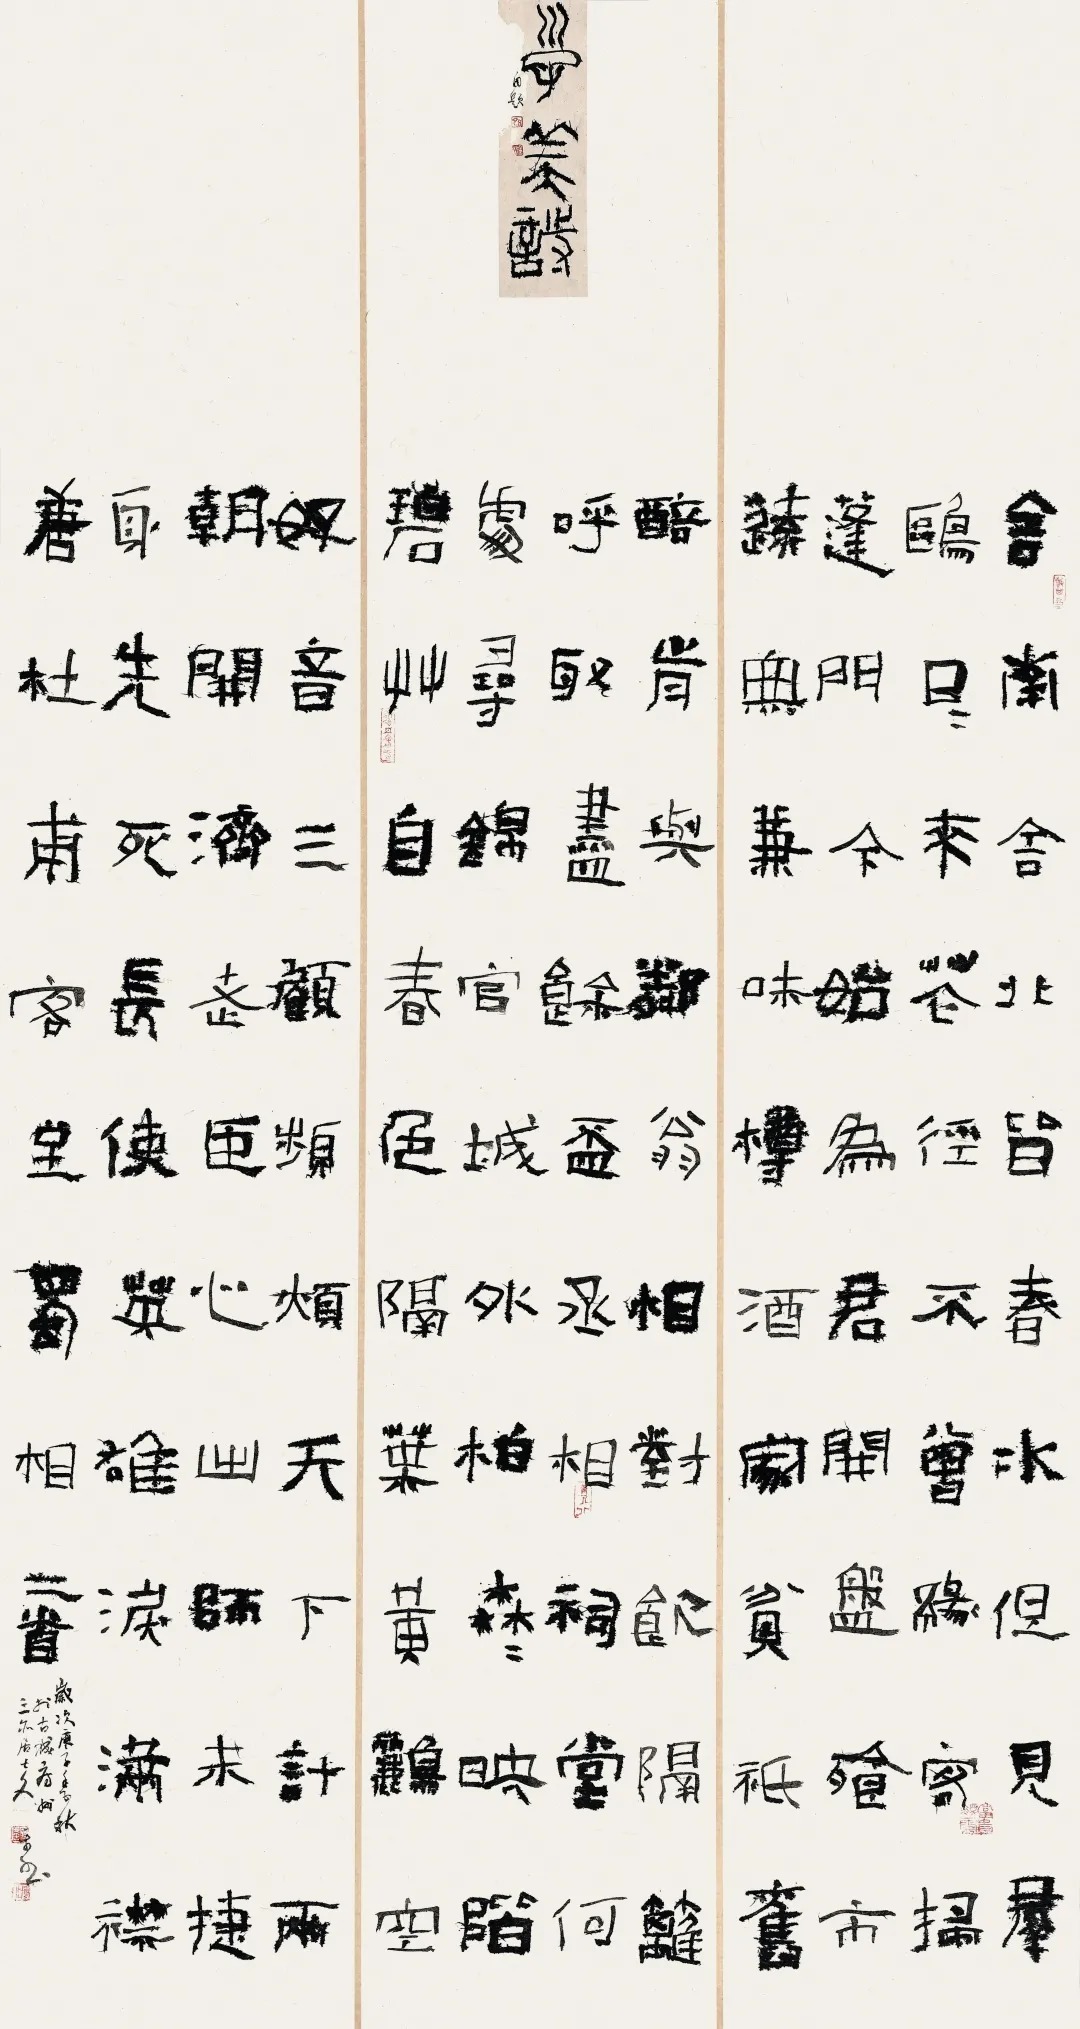 舍南舍北皆春水但見羣
鷗日〻來花徑不曾緣客掃
蓬門今始為君開盤飧市
遠無兼味樽酒家貧祇舊
醅肯與鄰翁相對飲隔籬
呼取盡餘盃丞相祠堂何
處尋錦官城外柏森〻映階
碧艸自春色隔葉黃鸝空
好音三顧頻煩天下計兩
朝開濟老臣心出師未捷
身先死長使英雄淚滿襟
唐杜甫客至蜀相二首
歲次庚子秋